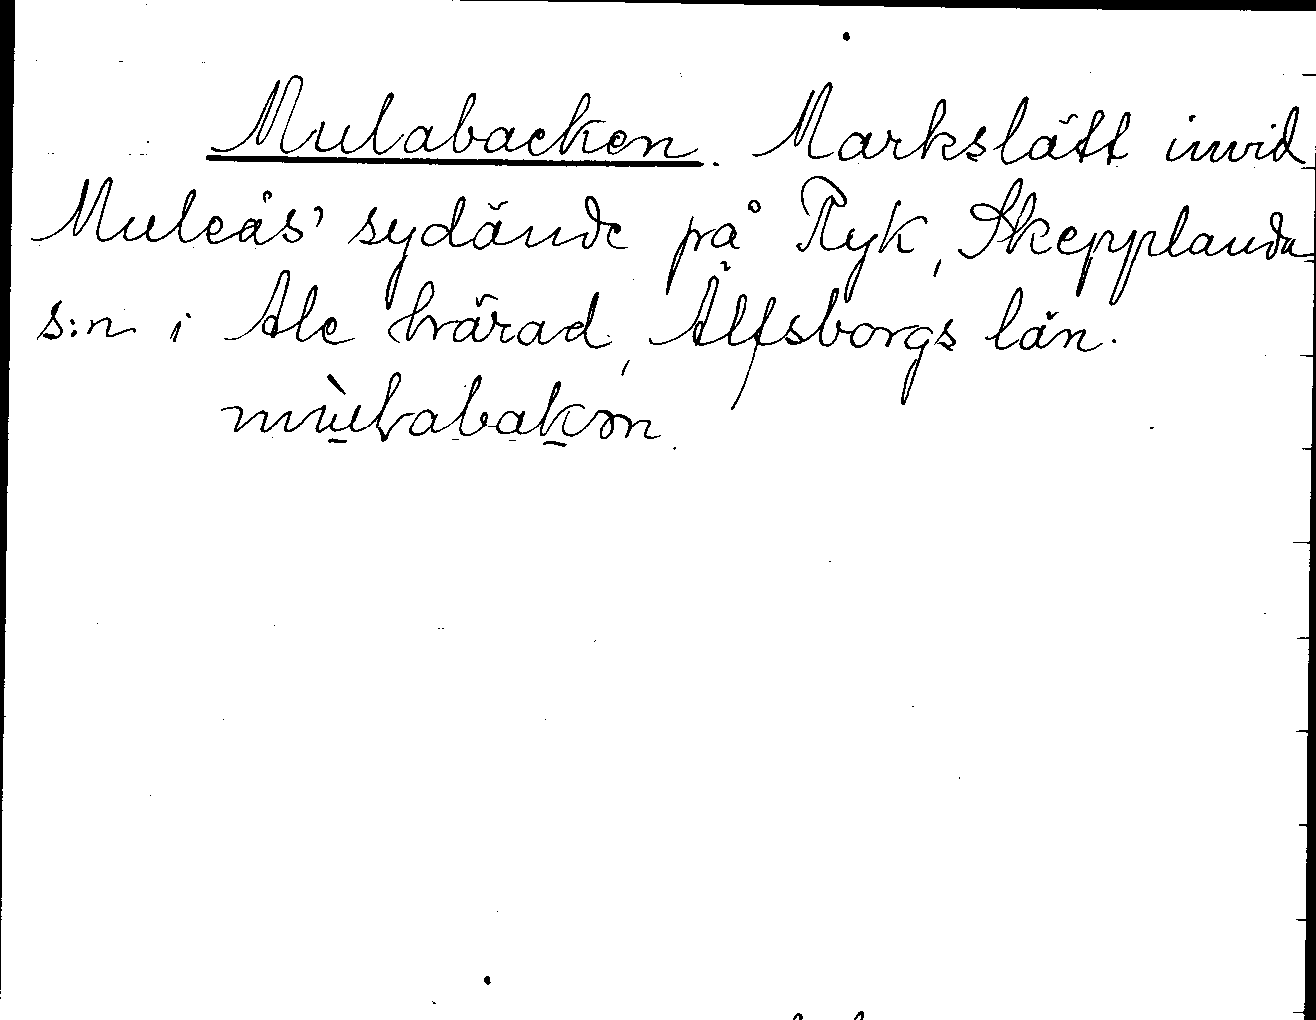 Mulabacken. Markslätt invid
Muleås' sydände på Ryk, Skepplanda
s:n i Ale härad, Älfsborgs län.